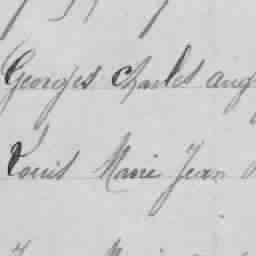 Georges Charles aug
Louis Marie Jean